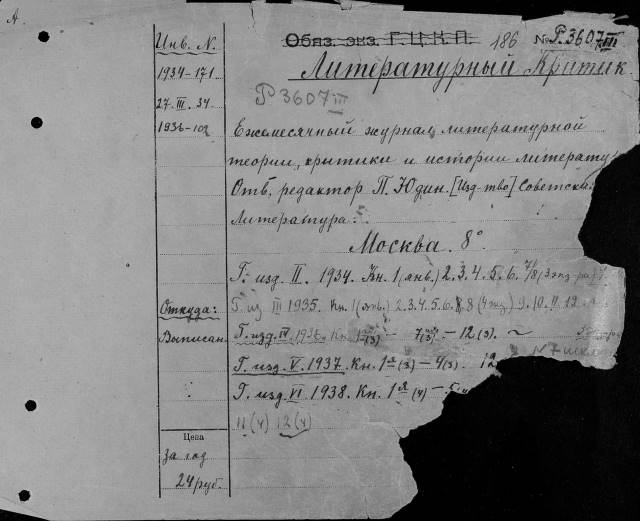 А.
Инв. N.
Обяз. экз. Г.Ц.К.П. 186 № Р.3607 III
1934-171
Литературный Критик.
27.III.34.
Р 3607 III
1936-102
Ежемесячный журнал литературной
теории, критики и истории литерату
Отв. редактор П. Юдин. [Изд-тво] Советска
Литература.
Москва. 8°
Г. изд. II. 1934. Кн. 1 (янв.) 2.3.4.5.6. 7/8 (3 экз-ра)
Откуда:
Г. из III 1935. Кн. 1 (янв.) 2.3.4.5.6. 8 (4 экз) 9.10.11.12
Выписан.
Г. изд. IV. 1936. Кн. 1 (3) – 7 (3) – 12 (3).
N 7
Г. изд. V. 1937. Кн. 1 я (3) – 4 (3) . 12
Г. изд. VI 1938. Кн. 1 я (4) – 5
11 (4) 12 (4)
Цена
за год
24 руб.